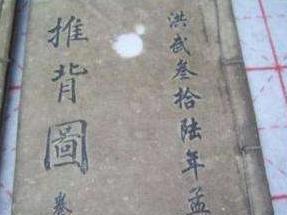 洪武叁拾陸年孟
推背圖卷